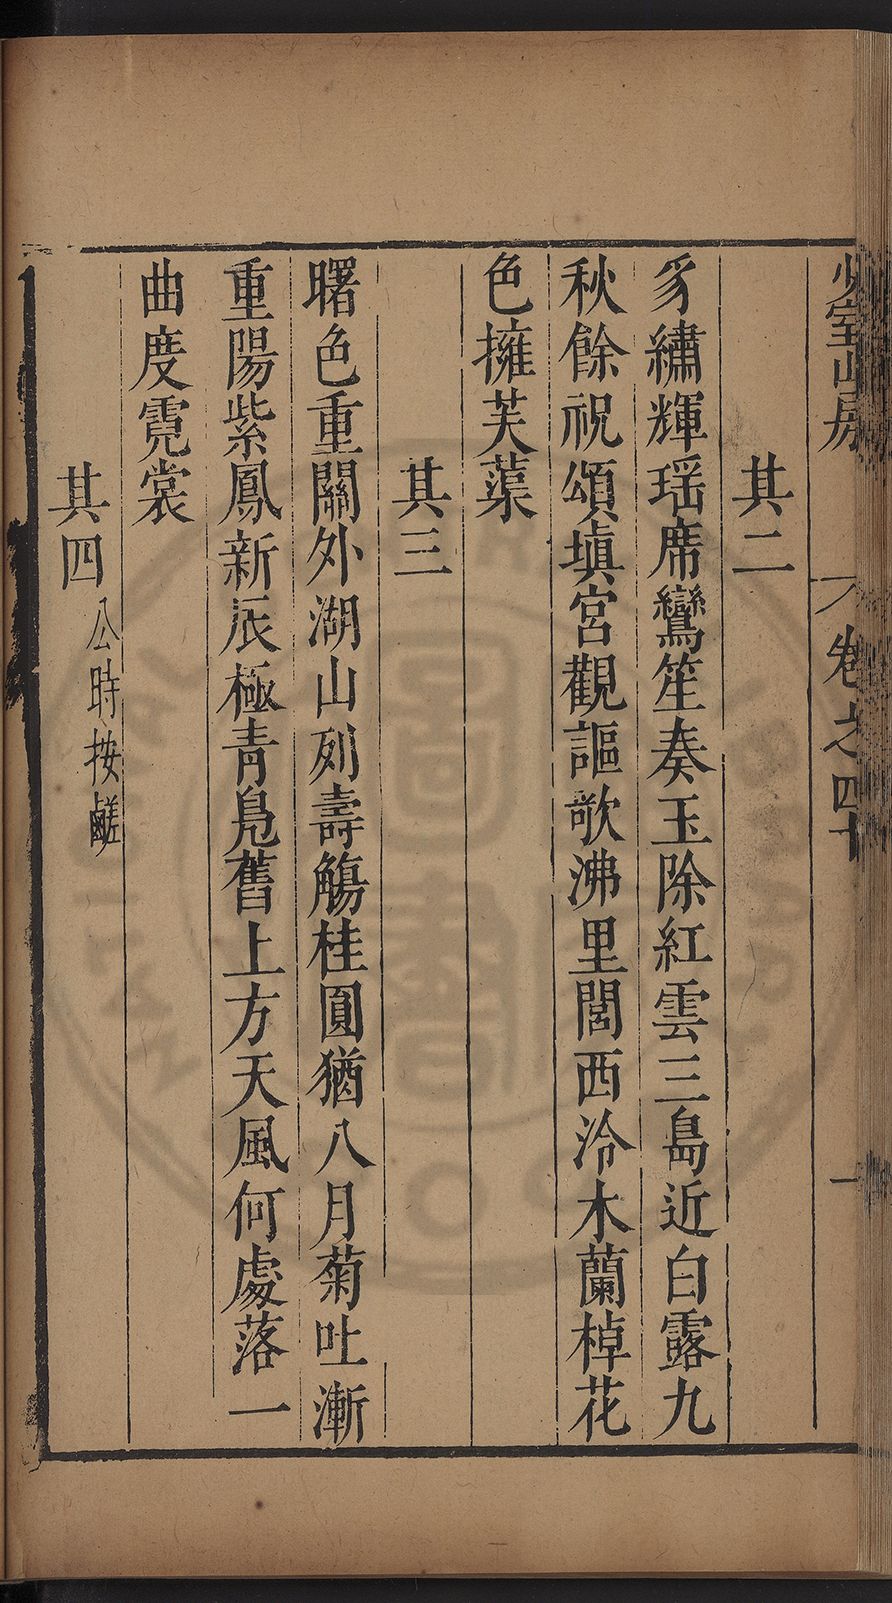 少室山房
卷之四十
一
其二
豸繡輝瑶席鸞笙奏玉除紅雲三島近白露九
秋餘祝頌塡宮觀謳歌沸里閭西泠木蘭棹花
色擁芙蕖
其三
曙色重關外湖山列壽觴桂圓猶八月菊吐漸
重陽紫鳳新辰極青鳧舊上方天風何處落一
曲度霓裳
其四公時按鹺